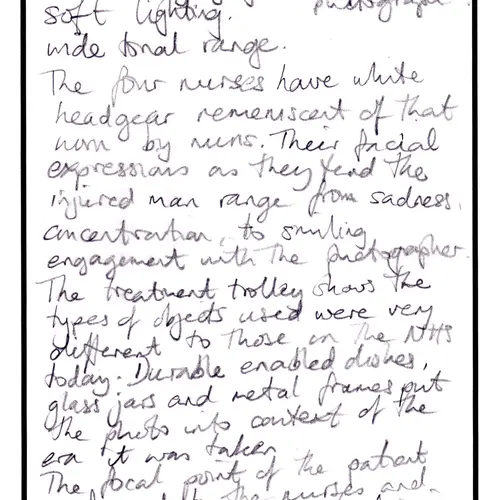 soft lighting. photograph
wide tonal range.
The four nurses have white
headgear remeniscent of that
worn by nuns. Their facial
expressions as they tend the
injured man range from sadness,
concentration, to smiling
engagement with the photographer.
The treatment trolley shows the
types of objects used were very
different to those in the NHS
today. Durable enabled dishes,
glass jars and metal frames put
the photo into context of the
era it was taken
The focal point of the patient
the nurses and